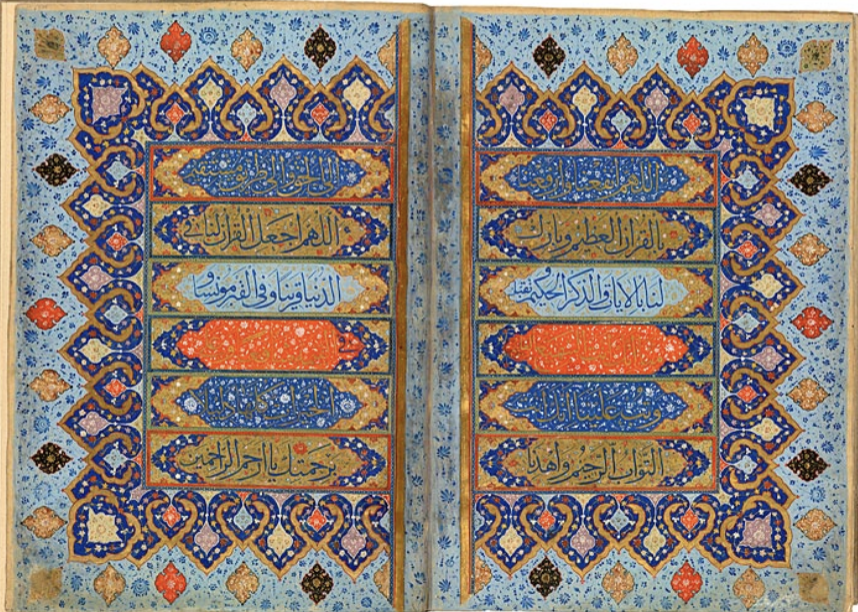 اللهم انفعنا وارفعنا
بالقران العظيم وبارك
لنا بالايات والذكر الحكيم وتقبل
انك انت السميع
وتب علينا انك انت
التواب الرحيم واهدنا
الى الحق والى طريق مستقيم
اللهم اجعل القران لنا في
الدنيا قرينا وفي القبر مونسا و
الخيرات كلها دليلا
برحمتك يا ارحم الراحمين